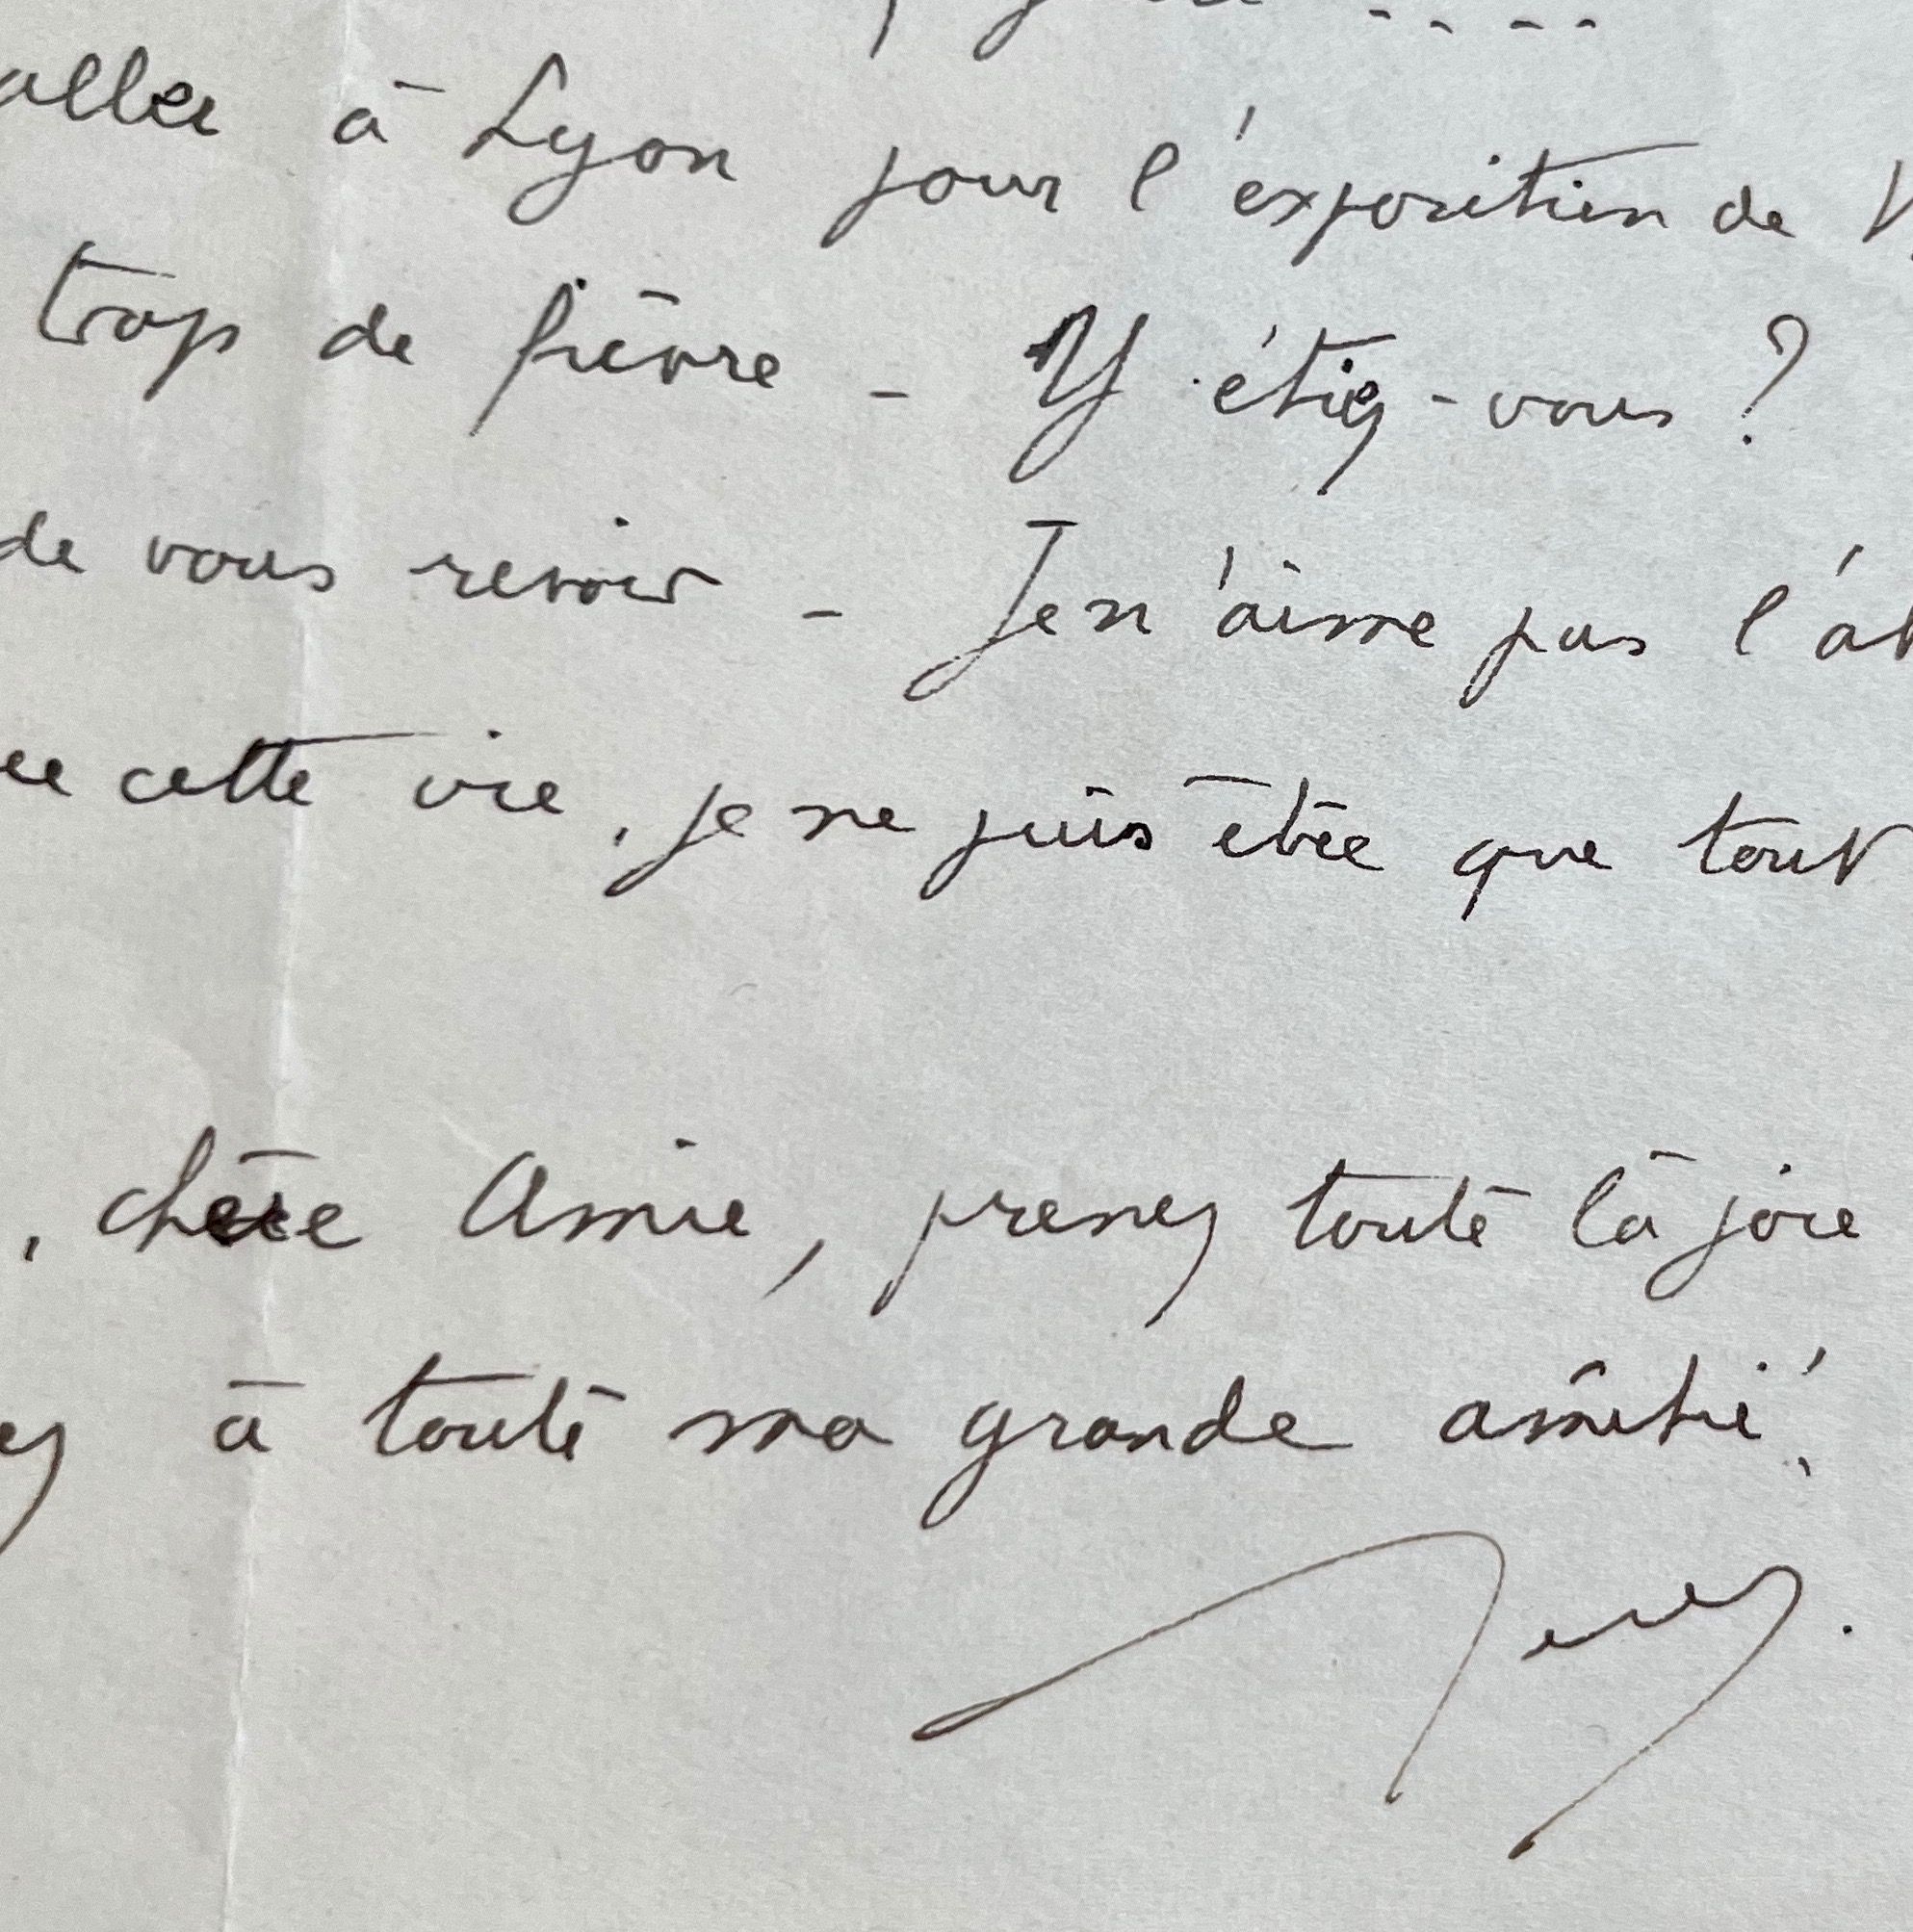 aller à Lyon pour l'exposition de
trop de fièvre - Y étiez-vous ?
de vous revoir - Je n'aime pas l'
cette vie, je ne puis être que tout
, chère Amie, prenez toute la joie
à toute ma grande amitié.